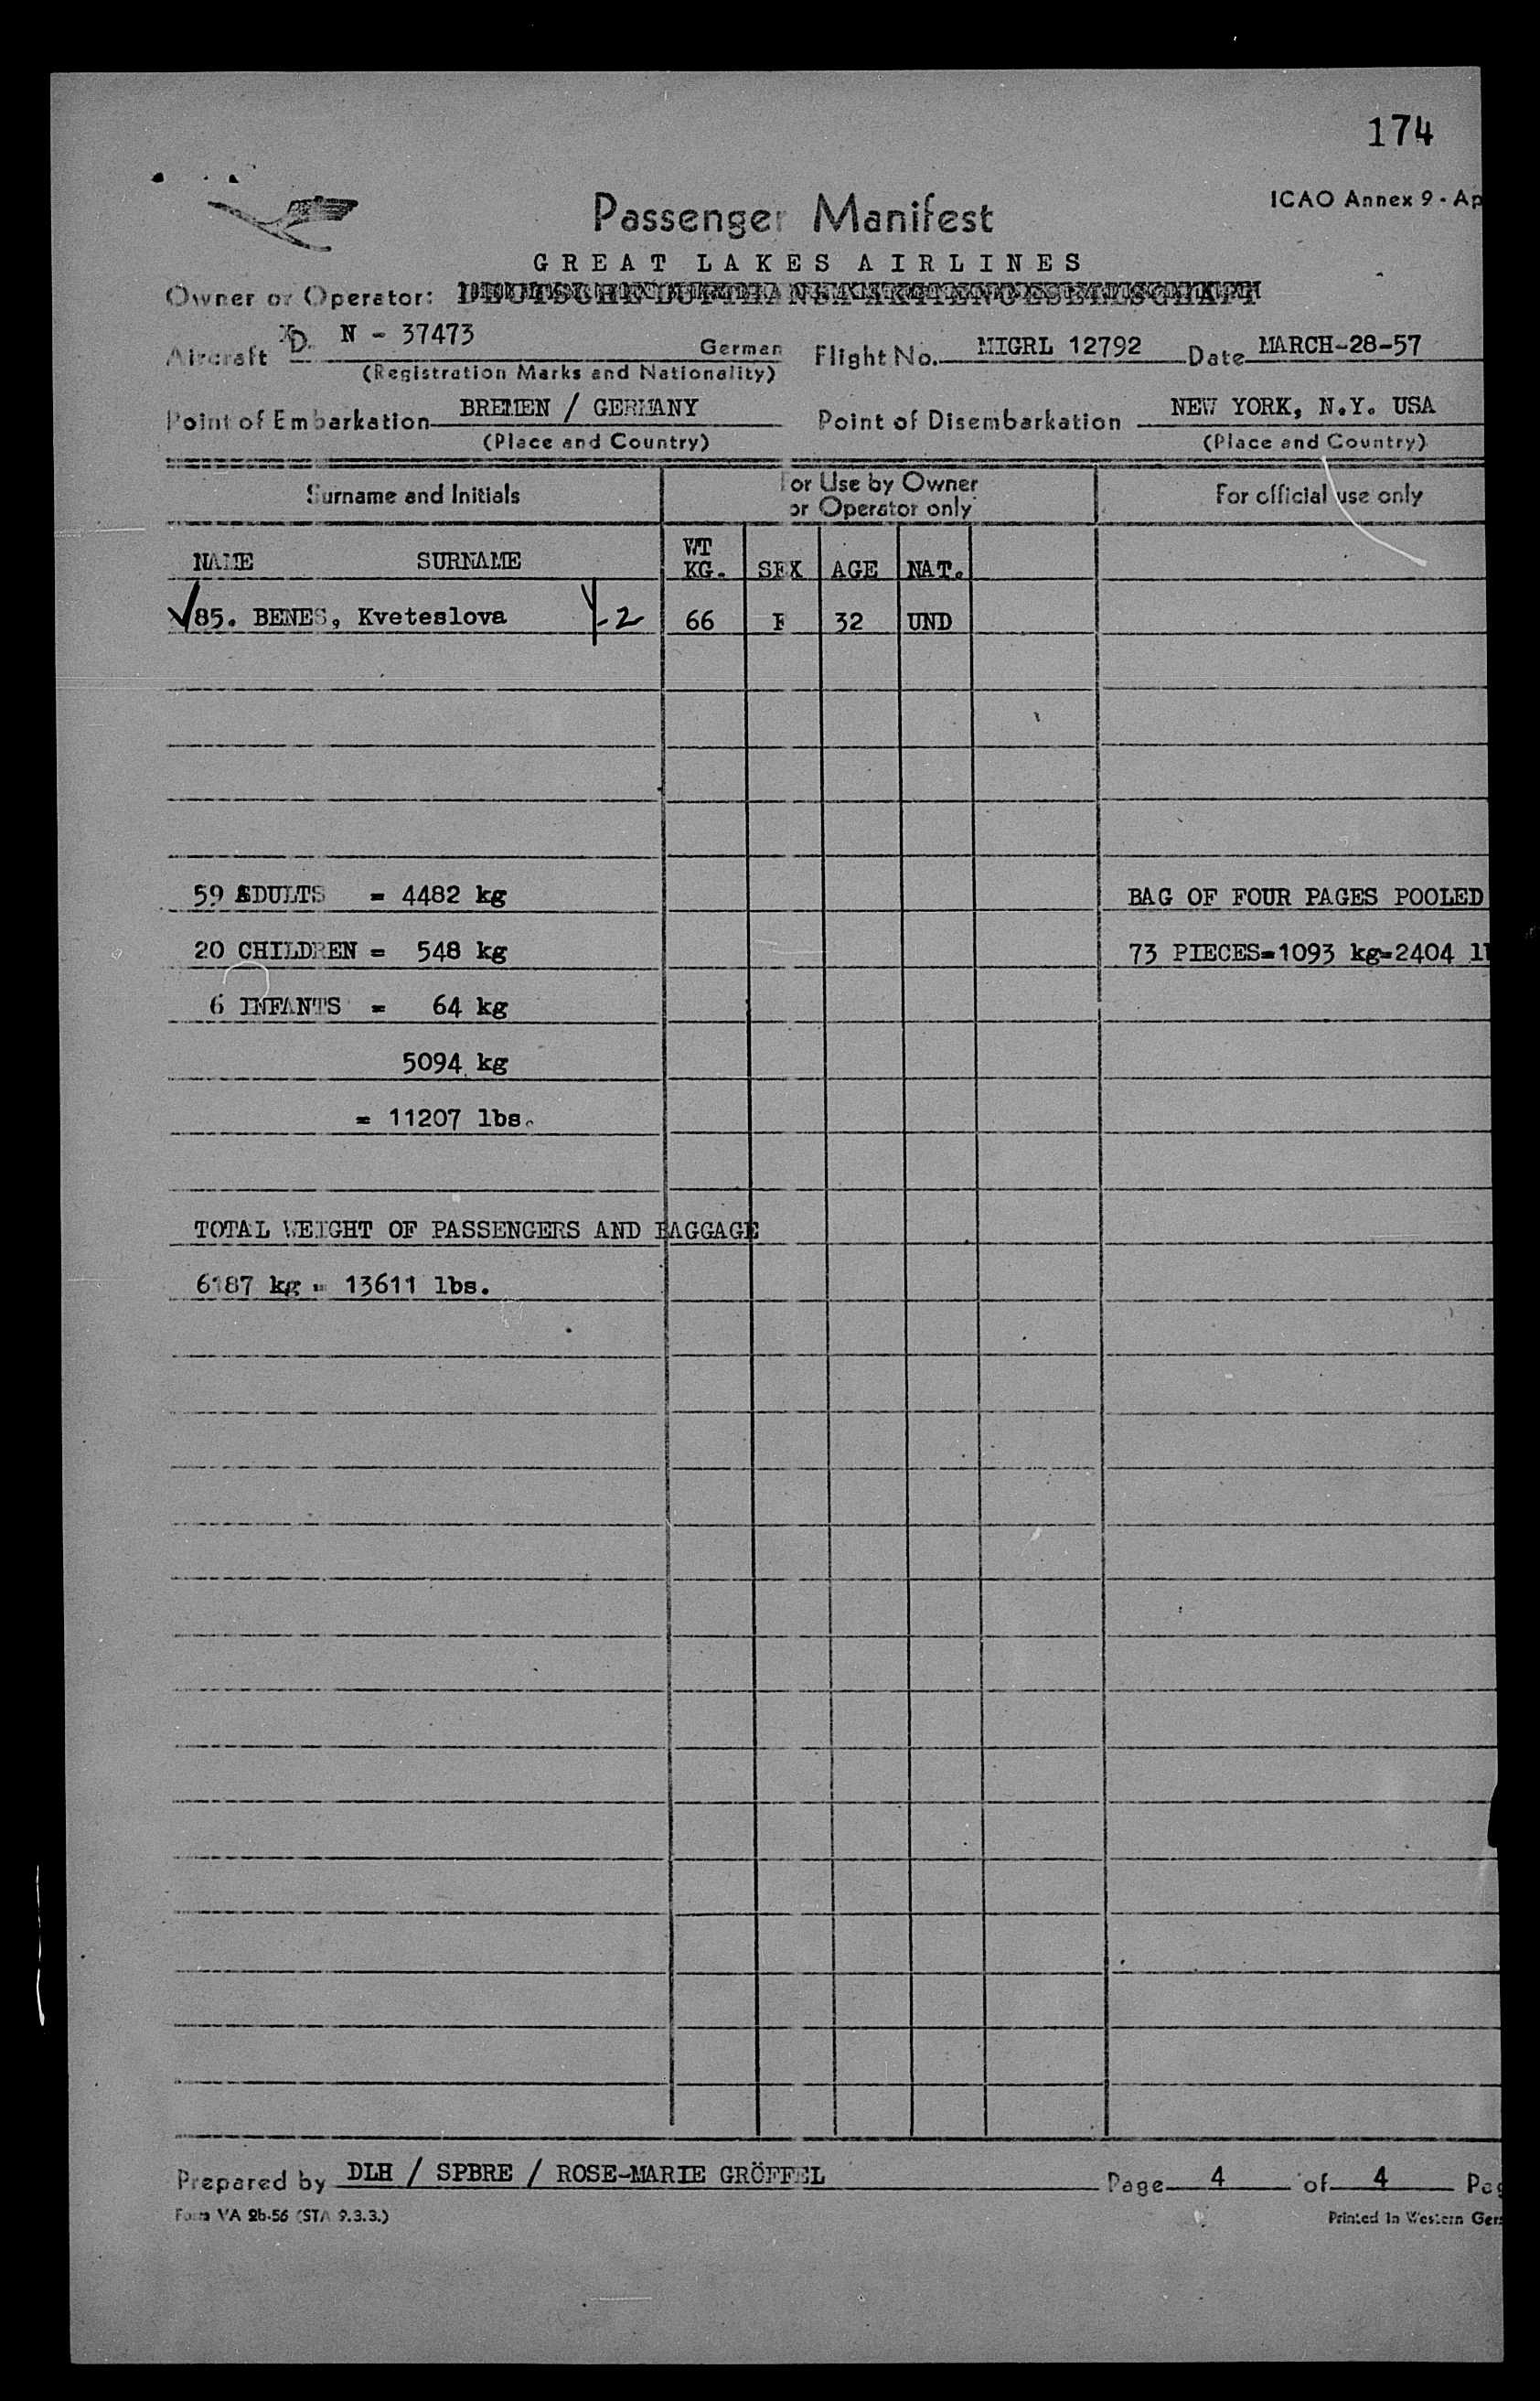 174
Passenger Manifest
ICAO Annex 9 - Ap
GREAT LAKES AIRLINES
Owner or Operator: DEUTSCHE LUFTHANSA AKTIENGESELLSCHAFT
Aircraft D. N - 37473 German Flight No. MIGRL 12792 Date MARCH-28-57
(Registration Marks and Nationality)
Point of Embarkation BREMEN / GERMANY Point of Disembarkation NEW YORK, N.Y. USA
(Place and Country) (Place and Country)
Surname and Initials For Use by Owner or Operator only For official use only
NAME SURNAME WT KG. SEX AGE NAT.
85. BENES, Kveteslova Y-2 66 F 32 UND
59 ADULTS = 4482 kg BAG OF FOUR PAGES POOLED
20 CHILDREN = 548 kg 73 PIECES=1093 kg=2404 lb
6 INFANTS = 64 kg
5094 kg
= 11207 lbs.
TOTAL WEIGHT OF PASSENGERS AND BAGGAGE
6187 kg = 13611 lbs.
Prepared by DLH / SPBRE / ROSE-MARIE GRÖFFEL Page 4 of 4 Pag
Form VA 2b-56 (STA 9.3.3.) Printed in Western Ger